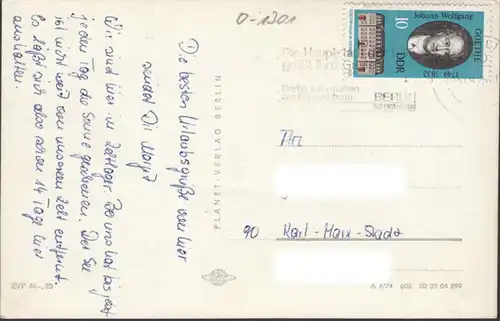 0-1301
Die besten Urlaubsgrüße von hier
sendet Dir Margit
Wir sind hier im Zeltlager. Bei uns hat bis jetzt
jeden Tag die Sonne geschienen. Der See
ist nicht weit von unserem Zelt entfernt.
Es läßt sich also schon 14 Tage hier
aushalten.
PLANET-VERLAG BERLIN
EVP M -,25
Johann Wolfgang
GOETHE
1749 - 1832
DDR
10
BERLIN
90 Karl-Marx-Stadt
605 02 05 04 299